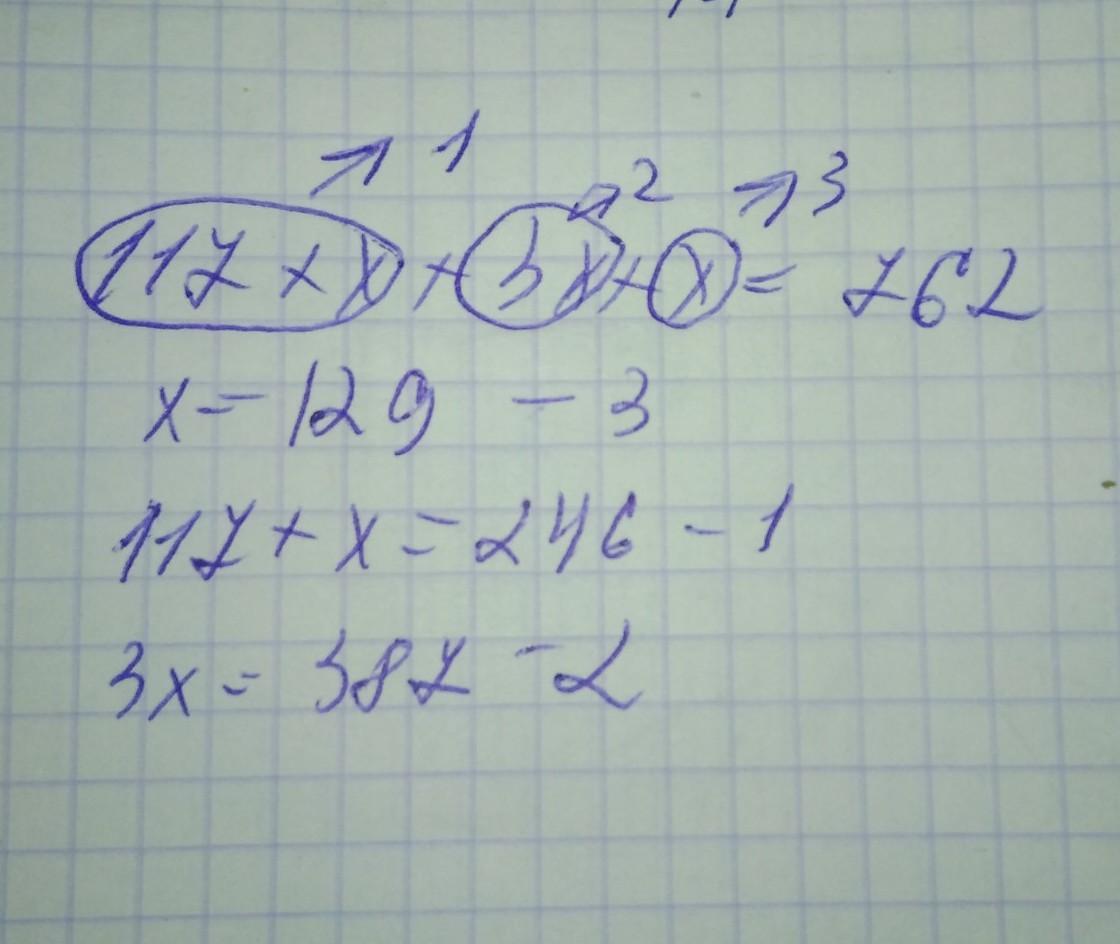 ↗ 1 ↗ 2 ↗ 3
117 + x + 3x + x = 762
x = 129 - 3
117 + x = 246 - 1
3x = 387 - 2